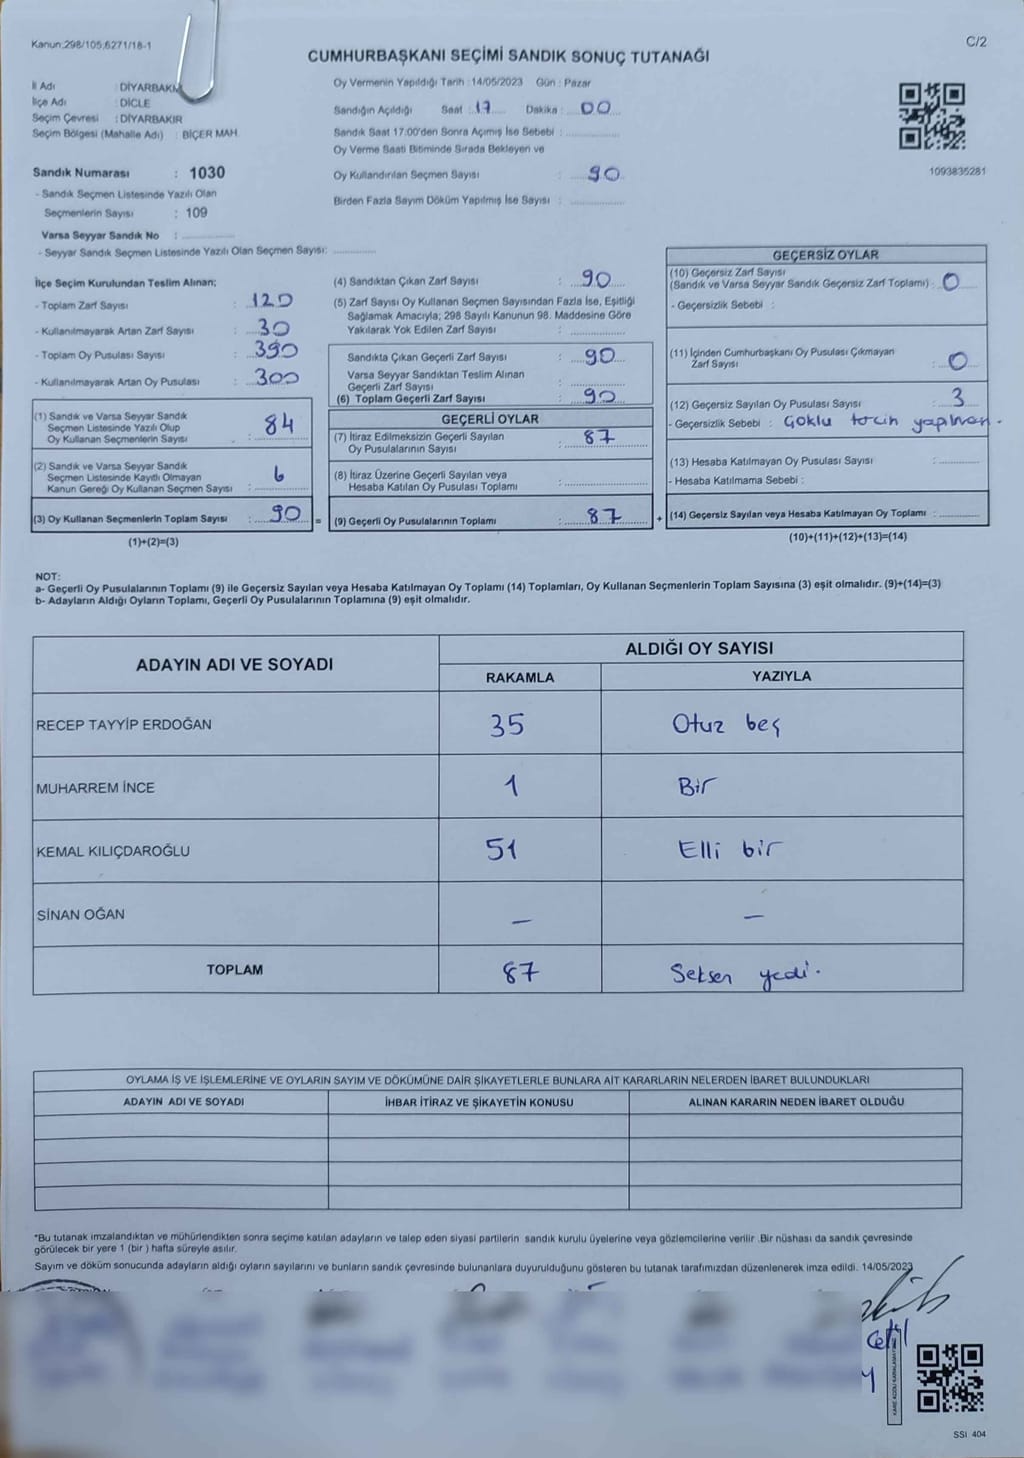 Kanun:298/105,6271/18-1
C/2
CUMHURBAŞKANI SEÇİMİ SANDIK SONUÇ TUTANAĞI
İl Adı : DİYARBAKIR
İlçe Adı : DİCLE
Seçim Çevresi : DİYARBAKIR
Seçim Bölgesi (Mahalle Adı) : BİÇER MAH.
Oy Vermenin Yapıldığı Tarih : 14/05/2023 Gün : Pazar
Sandığın Açıldığı Saat : 17 Dakika : 00
Sandık Saat 17:00'den Sonra Açımış İse Sebebi :
Oy Verme Saati Bitiminde Sırada Bekleyen ve
Oy Kullandırılan Seçmen Sayısı : 90
Birden Fazla Sayım Döküm Yapılmış İse Sayısı :
1093835281
Sandık Numarası : 1030
- Sandık Seçmen Listesinde Yazılı Olan
Seçmenlerin Sayısı : 109
Varsa Seyyar Sandık No :
- Seyyar Sandık Seçmen Listesinde Yazılı Olan Seçmen Sayısı:
İlçe Seçim Kurulundan Teslim Alınan;
- Toplam Zarf Sayısı : 120
- Kullanılmayarak Artan Zarf Sayısı : 30
- Toplam Oy Pusulası Sayısı : 390
- Kullanılmayarak Artan Oy Pusulası : 300
(1) Sandık ve Varsa Seyyar Sandık
Seçmen Listesinde Yazılı Olup
Oy Kullanan Seçmenlerin Sayısı : 84
(2) Sandık ve Varsa Seyyar Sandık
Seçmen Listesinde Kayıtlı Olmayan
Kanun Gereği Oy Kullanan Seçmen Sayısı : 6
(3) Oy Kullanan Seçmenlerin Toplam Sayısı : 90 =
(1)+(2)=(3)
(4) Sandıktan Çıkan Zarf Sayısı : 90
(5) Zarf Sayısı Oy Kullanan Seçmen Sayısından Fazla İse, Eşitliği
Sağlamak Amacıyla; 298 Sayılı Kanunun 98. Maddesine Göre
Yakılarak Yok Edilen Zarf Sayısı :
Sandıkta Çıkan Geçerli Zarf Sayısı : 90
Varsa Seyyar Sandıktan Teslim Alınan
Geçerli Zarf Sayısı :
(6) Toplam Geçerli Zarf Sayısı : 90
GEÇERLİ OYLAR
(7) İtiraz Edilmeksizin Geçerli Sayılan
Oy Pusulalarının Sayısı : 87
(8) İtiraz Üzerine Geçerli Sayılan veya
Hesaba Katılan Oy Pusulası Toplamı :
(9) Geçerli Oy Pusulalarının Toplamı : 87 +
GEÇERSİZ OYLAR
(10) Geçersiz Zarf Sayısı
(Sandık ve Varsa Seyyar Sandık Geçersiz Zarf Toplamı) : 0
- Geçersizlik Sebebi :
(11) İçinden Cumhurbaşkanı Oy Pusulası Çıkmayan
Zarf Sayısı : 0
(12) Geçersiz Sayılan Oy Pusulası Sayısı : 3
- Geçersizlik Sebebi : Çoklu tercih
(13) Hesaba Katılmayan Oy Pusulası Sayısı :
- Hesaba Katılmama Sebebi :
(14) Geçersiz Sayılan veya Hesaba Katılmayan Oy Toplamı :
(10)+(11)+(12)+(13)=(14)
NOT:
a- Geçerli Oy Pusulalarının Toplamı (9) ile Geçersiz Sayılan veya Hesaba Katılmayan Oy Toplamı (14) Toplamları, Oy Kullanan Seçmenlerin Toplam Sayısına (3) eşit olmalıdır. (9)+(14)=(3)
b- Adayların Aldığı Oyların Toplamı, Geçerli Oy Pusulalarının Toplamına (9) eşit olmalıdır.
ADAYIN ADI VE SOYADI ALDIĞI OY SAYISI
RAKAMLA YAZIYLA
RECEP TAYYİP ERDOĞAN 35 Otuz beş
MUHARREM İNCE 1 Bir
KEMAL KILIÇDAROĞLU 51 Elli bir
SİNAN OĞAN — —
TOPLAM 87 Seksen yedi.
OYLAMA İŞ VE İŞLEMLERİNE VE OYLARIN SAYIM VE DÖKÜMÜNE DAİR ŞİKAYETLERLE BUNLARA AİT KARARLARIN NELERDEN İBARET BULUNDUKLARI
ADAYIN ADI VE SOYADI İHBAR İTİRAZ VE ŞİKAYETİN KONUSU ALINAN KARARIN NEDEN İBARET OLDUĞU
*Bu tutanak imzalandıktan ve mühürlendikten sonra seçime katılan adayların ve talep eden siyasi partilerin sandık kurulu üyelerine veya gözlemcilerine verilir .Bir nüshası da sandık çevresinde
görülecek bir yere 1 (bir ) hafta süreyle asılır.
Sayım ve döküm sonucunda adayların aldığı oyların sayılarını ve bunların sandık çevresinde bulunanlara duyurulduğunu gösteren bu tutanak tarafımızdan düzenlenerek imza edildi. 14/05/2023
SSI 404